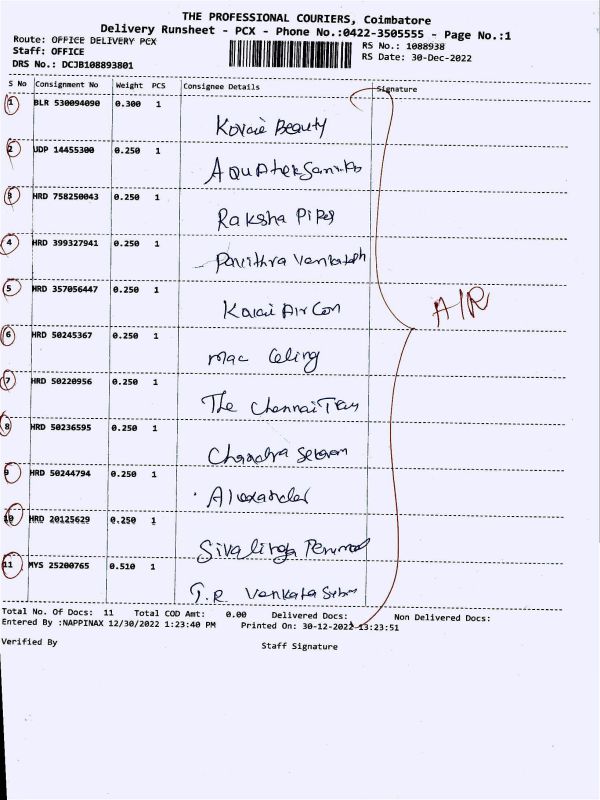 THE PROFESSIONAL COURIERS, Coimbatore
Delivery Runsheet - PCX - Phone No.:0422-3505555 - Page No.:1
Route: OFFICE DELIVERY PCX
RS No.: 1088938
Staff: OFFICE
RS Date: 30-Dec-2022
DRS No.: DCJB108893801
S No Consignment No Weight PCS Consignee Details Signature
1 BLR 530094090 0.300 1
Kovai Beauty
2 UDP 14455300 0.250 1
3 HRD 758250043 0.250 1
Raksha Pipes
4 HRD 399327941 0.250 1
Pavithra Venkatesh
5 HRD 357056447 0.250 1
Kovai Air Con
A/R
6 HRD 50245367 0.250 1
Mac Celing
7 HRD 50220956 0.250 1
The Chennai
8 HRD 50236595 0.250 1
Chandra
9 HRD 50244794 0.250 1
Alexander
10 HRD 20125629 0.250 1
Sivalinga Perumal
11 MYS 25200765 0.510 1
T.R Venkata
Total No. Of Docs: 11 Total COD Amt: 0.00 Delivered Docs: Non Delivered Docs:
Entered By :NAPPINAX 12/30/2022 1:23:40 PM Printed On: 30-12-2022 13:23:51
Verified By
Staff Signature